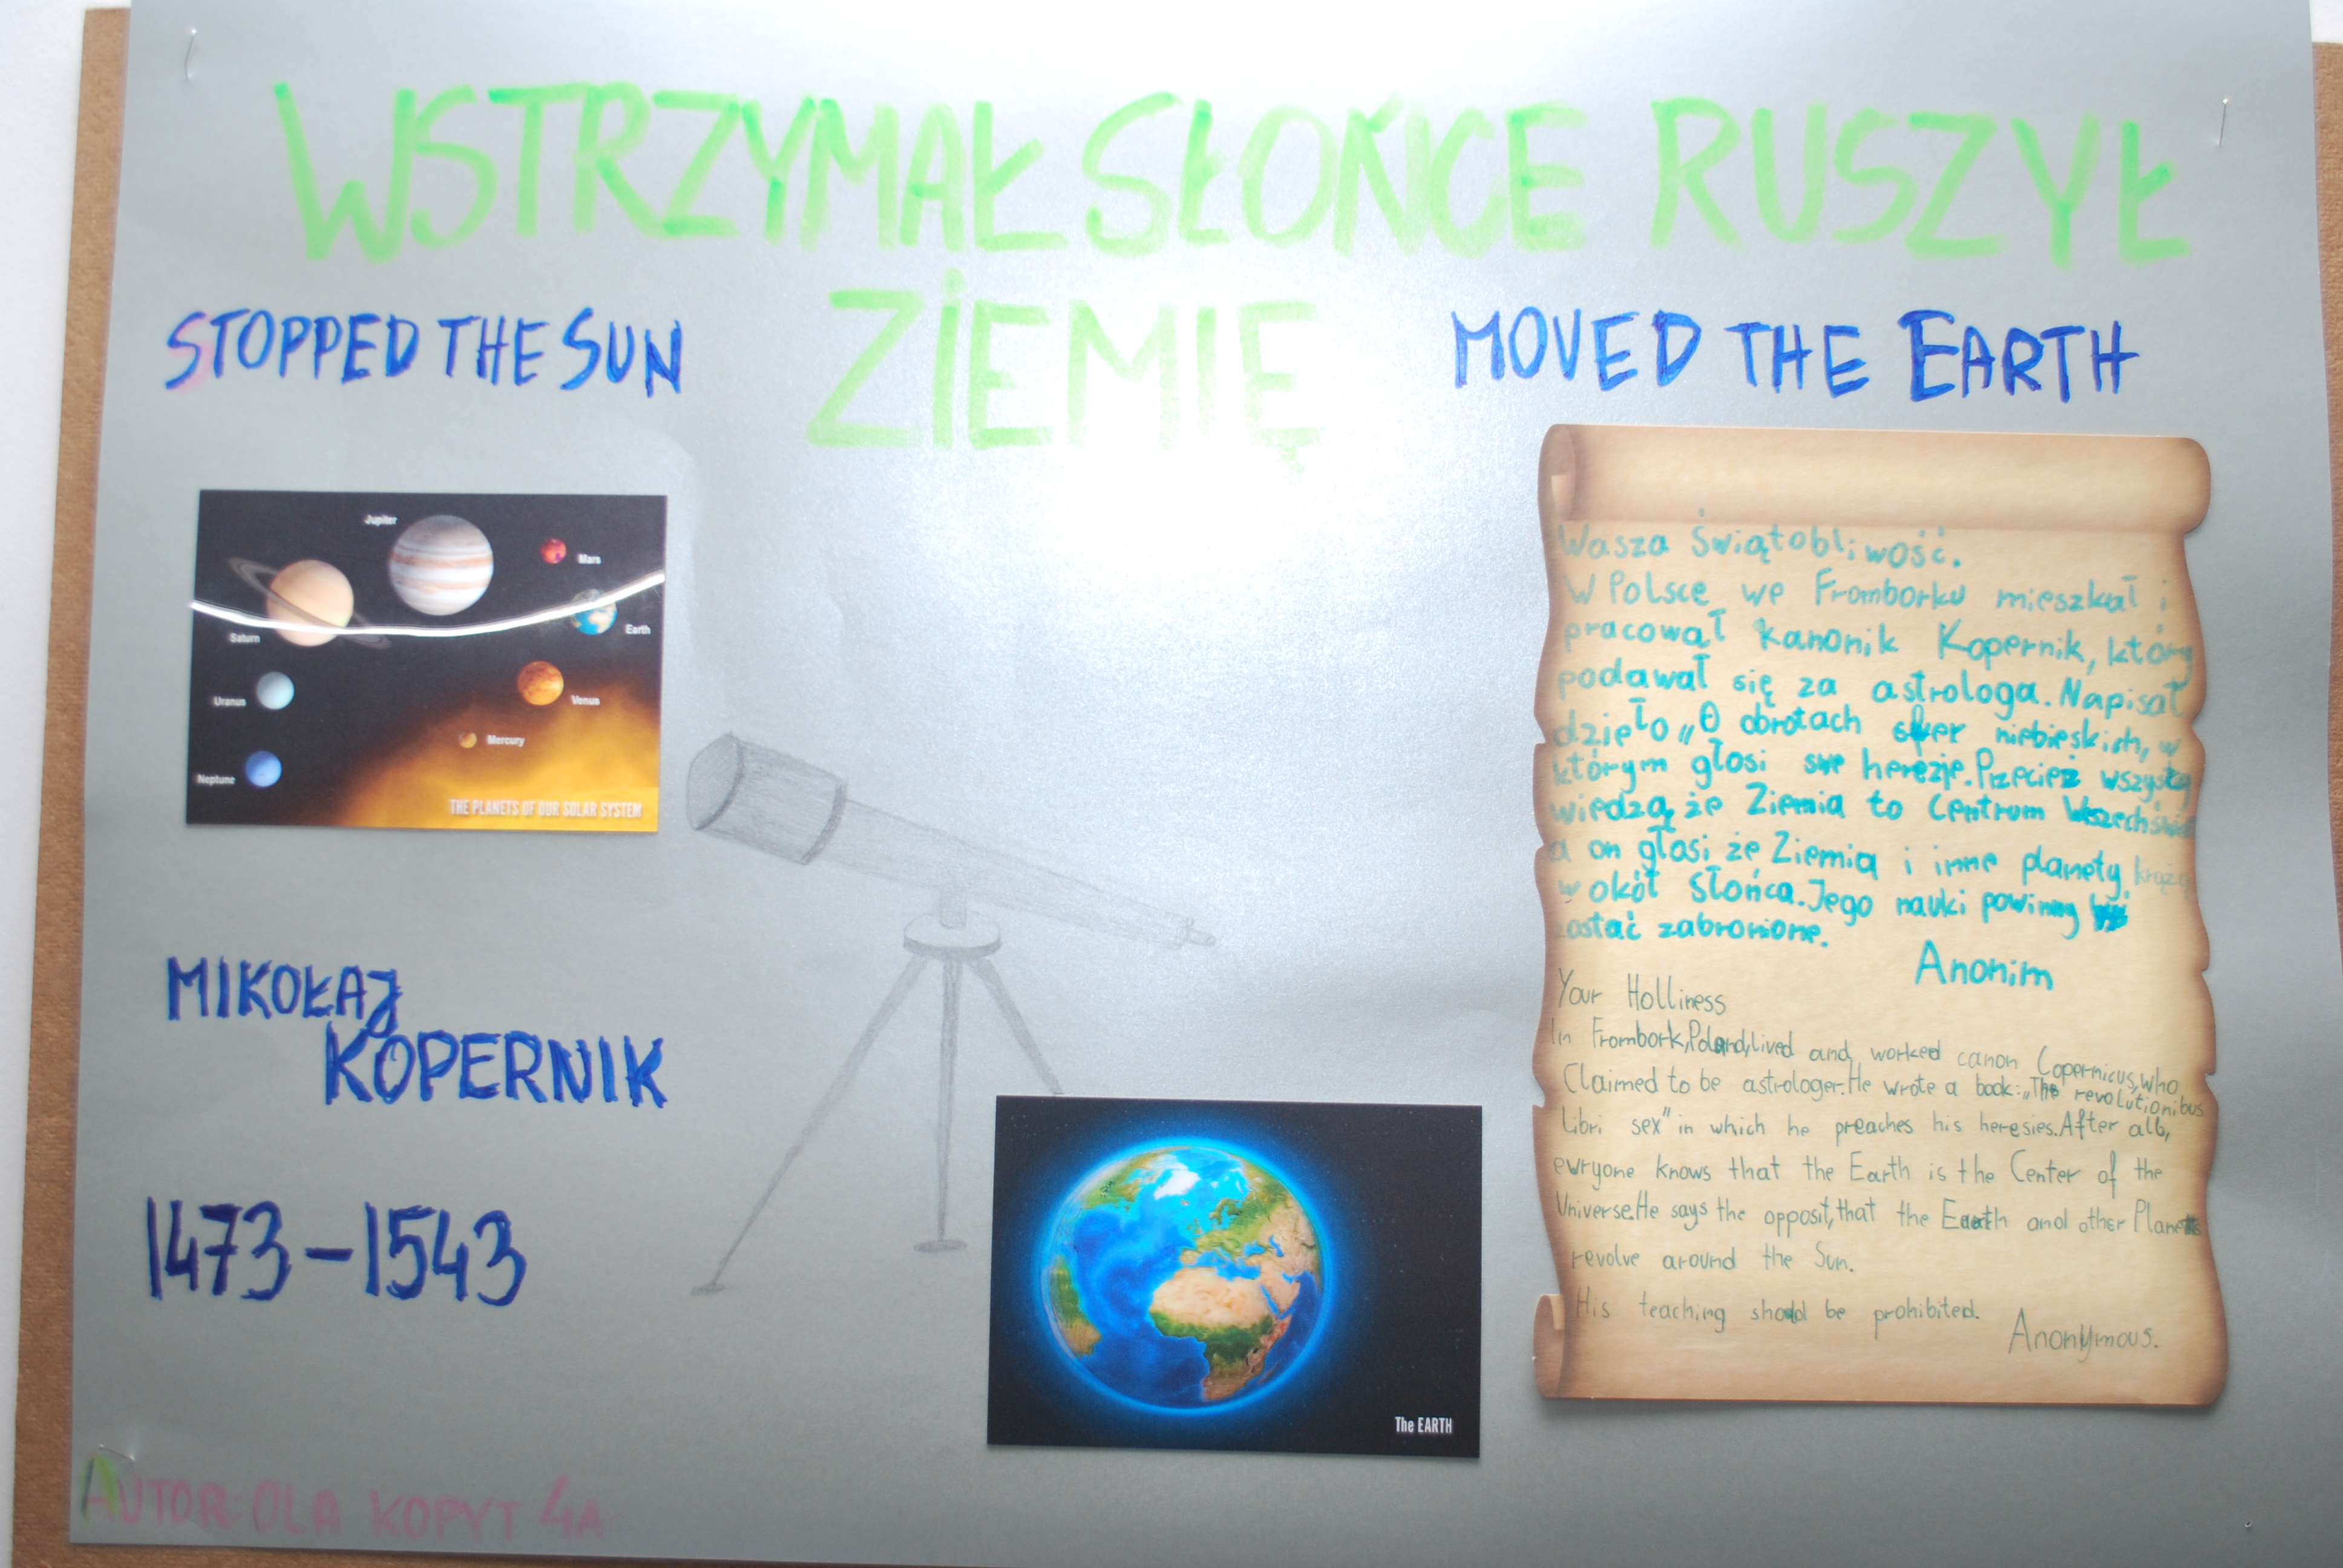 WSTRZYMAŁ SŁOŃCE RUSZYŁ
ZIEMIĘ
STOPPED THE SUN
MOVED THE EARTH
Jupiter
Mars
Earth
Saturn
Uranus
Venus
Mercury
Neptune
THE PLANETS OF OUR SOLAR SYSTEM
MIKOŁAJ
KOPERNIK
1473-1543
The EARTH
AUTOR: OLA KOPYT 4A
Wasza Świątobliwość.
W Polsce we Fromborku mieszkał i
pracował kanonik Kopernik, który
podawał się za astrologa. Napisał
dzieło „O obrotach sfer niebieskich, w
którym głosi swe herezje. Przecież wszyscy
wiedzą, że Ziemia to Centrum
a on głosi że Ziemia i inne planety, krążą
w okół Słońca. Jego nauki powinny
zostać zabronione.
Anonim
Your Holliness
In Frombork, Poland, lived and worked canon Copernicus, who
Claimed to be astrologer. He wrote a book: „The revolutionibus
libri sex" in which he preaches his heresies. After all,
evryone knows that the Earth is the Center of the
Universe. He says the opposit, that the Earth and other Planets
revolve around the Sun.
His teaching should be prohibited.
Anonymous.